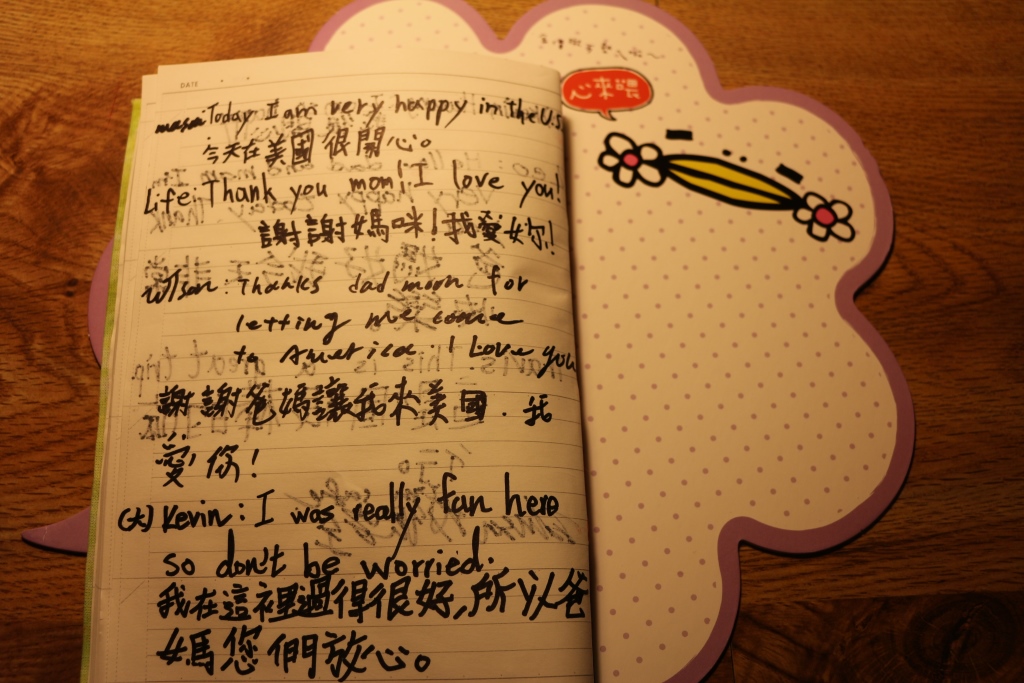 DATE
Today I am very happy in the U.S.
今天在美國很開心。
Life: Thank you mom! I love you!
謝謝媽咪!我愛妳!
Wilson: Thanks dad mom for
letting me come
to America. I Love you
謝謝爸媽讓我來美國.我
愛你!
(大) Kevin: I was really fun here
so don't be worried.
我在這裡過得很好,所以爸
媽您們放心。
心來喂